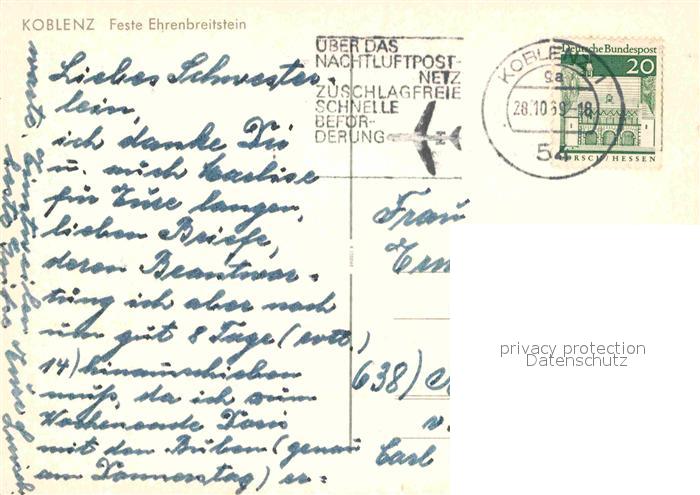 KOBLENZ Feste Ehrenbreitstein
ÜBER DAS
NACHTLUFTPOST-
NETZ
ZUSCHLAGFREIE
SCHNELLE
BEFÖR-
DERUNG
KOBLENZ 1
ga
28.10.69-18
54
Deutsche Bundespost
20
LORSCH/HESSEN
Liebes Schwester-
lein,
ich danke Dir
u. auch
für Eure langen,
lieben Briefe,
deren Beantwor-
tung ich aber noch
um gut 8 Tage (evtl.
14) hinausschieben
muß, da ich zum
Wochenende Doris
mit den Buben (genau
am Donnerstag) er-
warte. Einstweilen
Frau
638)
Carl
privacy protection
Datenschutz